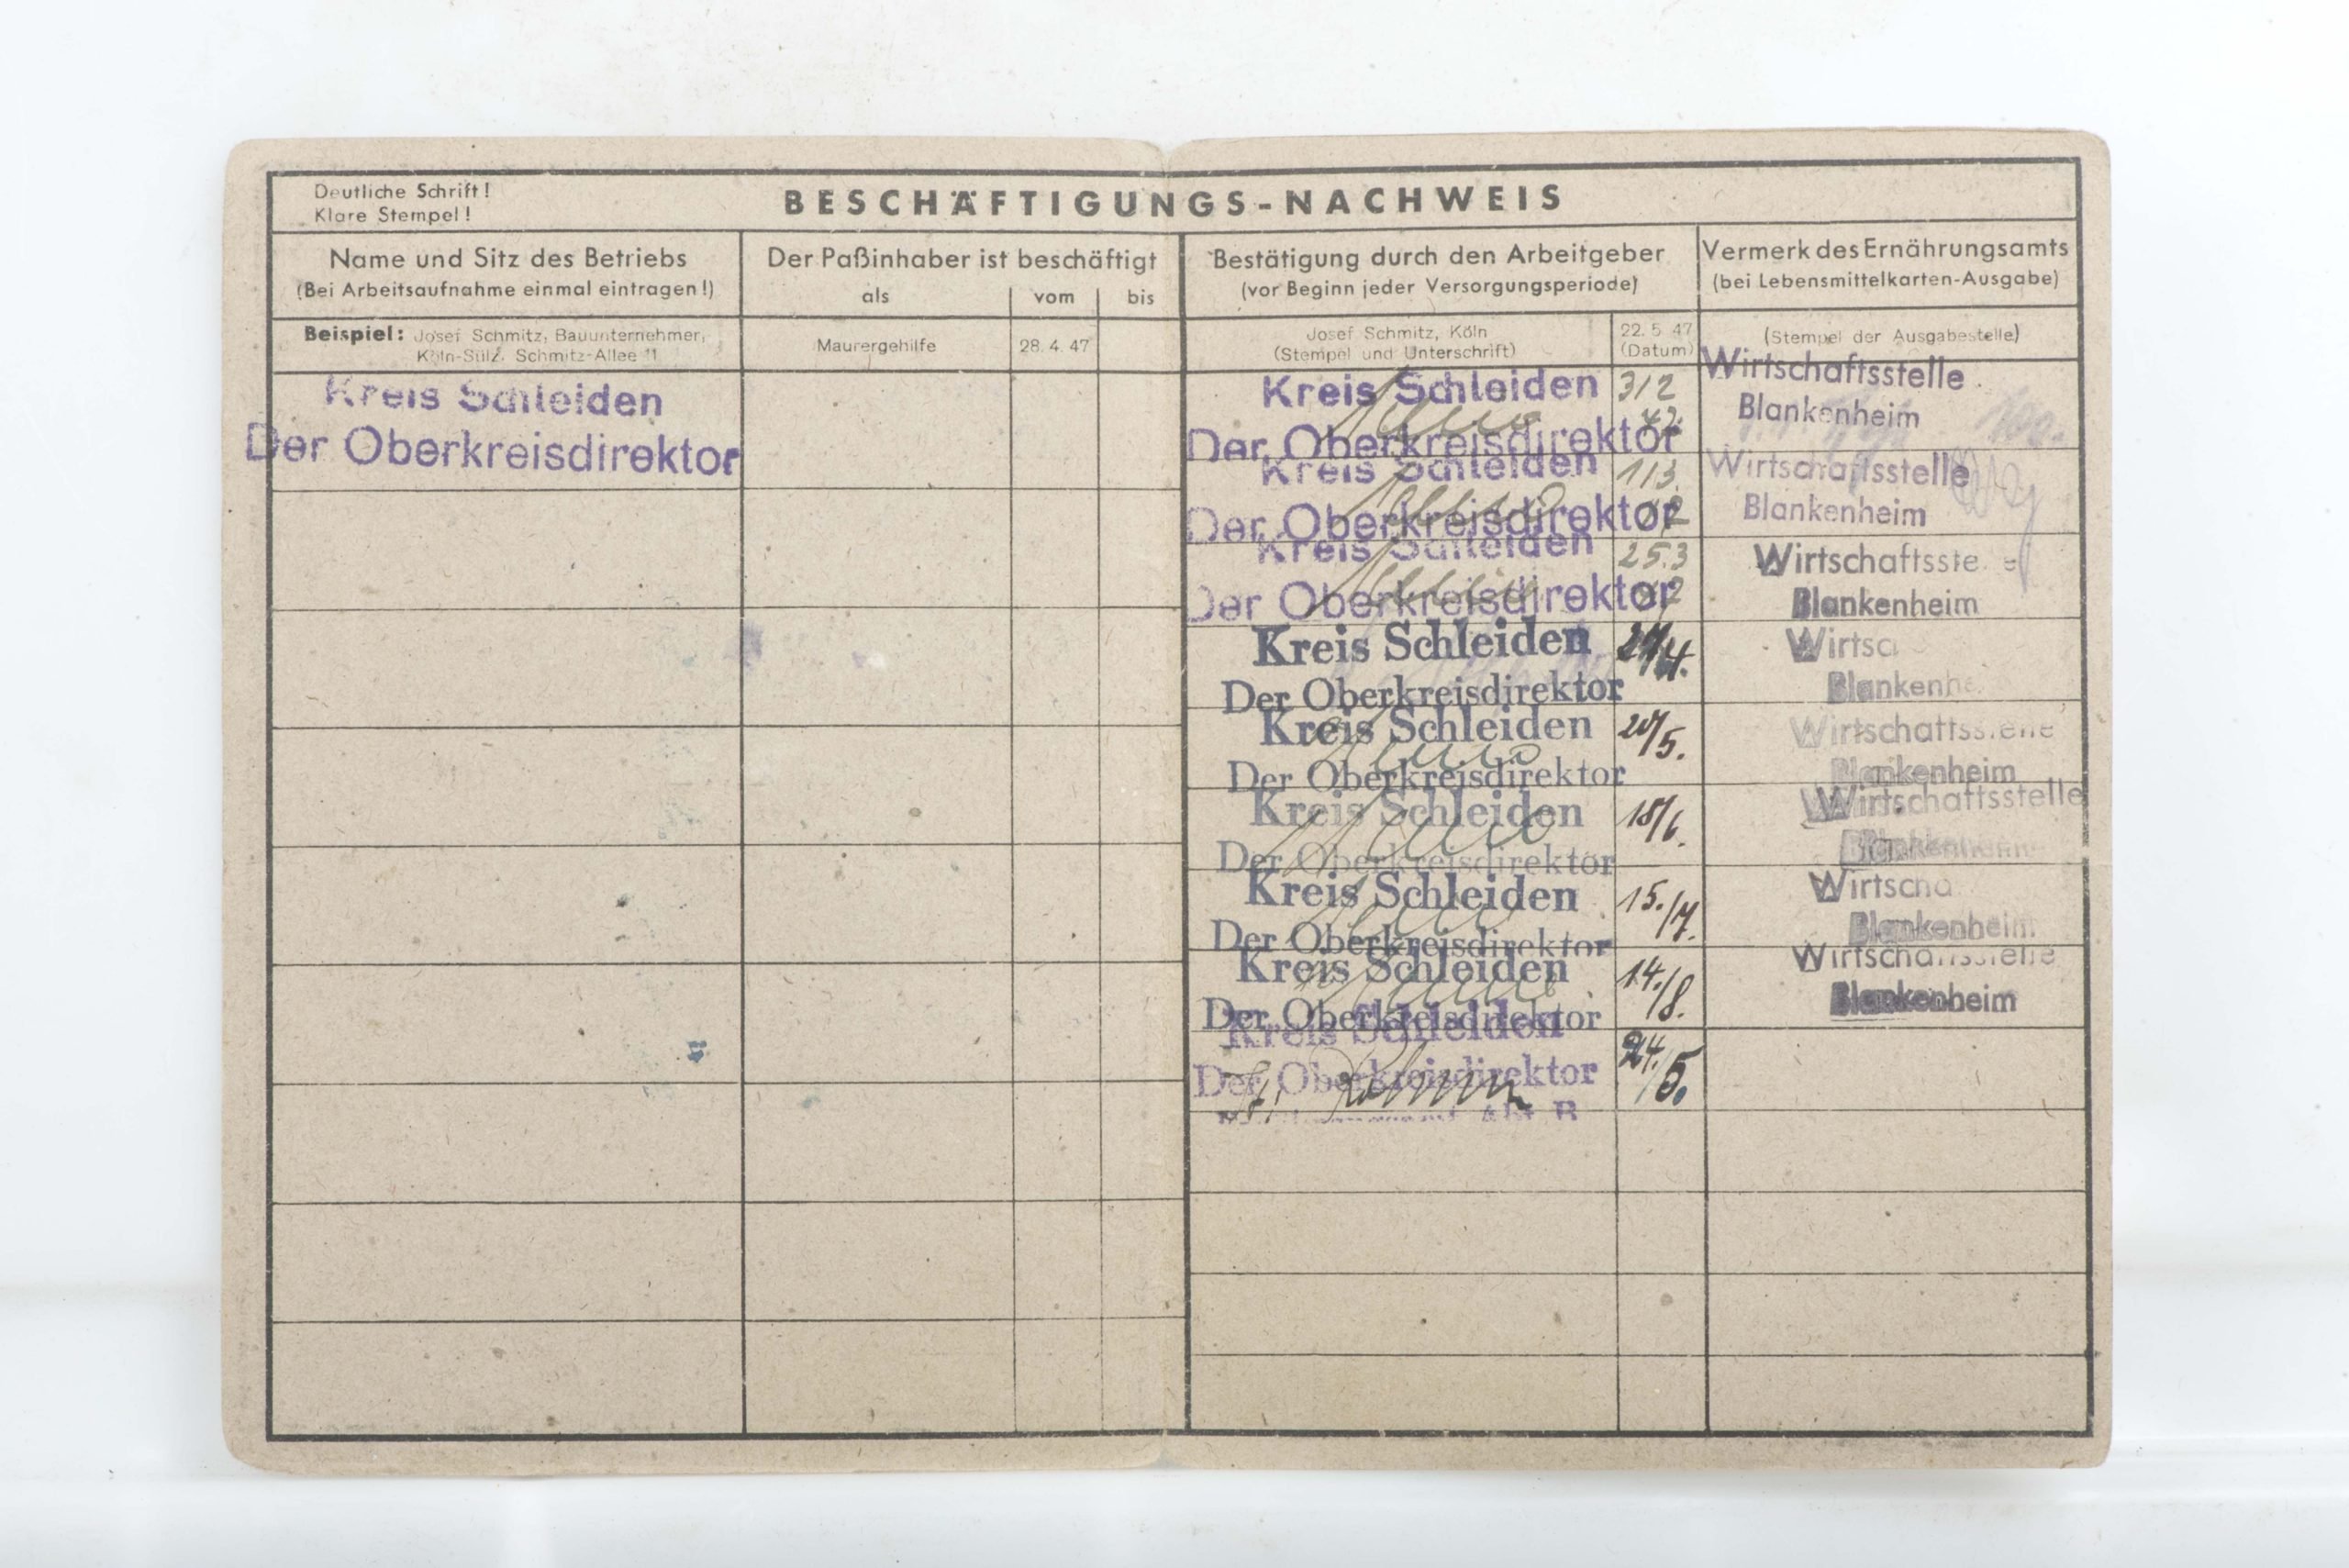 Deutliche Schrift!
Klare Stempel!
BESCHÄFTIGUNGS-NACHWEIS
Name und Sitz des Betriebs
(Bei Arbeitsaufnahme einmal eintragen!)
Der Paßinhaber ist beschäftigt
als vom bis
Bestätigung durch den Arbeitgeber
(vor Beginn jeder Versorgungsperiode)
Vermerk des Ernährungsamts
(bei Lebensmittelkarten-Ausgabe)
Beispiel: Josef Schmitz, Bauunternehmer,
Köln-Sülz, Schmitz-Allee 11
Maurergehilfe
28. 4. 47
Josef Schmitz, Köln
(Stempel und Unterschrift)
22. 5. 47
(Datum)
(Stempel der Ausgabestelle)
Kreis Schleiden
Der Oberkreisdirektor
Kreis Schleiden
Der Oberkreisdirektor
3/2
Wirtschaftsstelle
Blankenheim
Kreis Schleiden
Der Oberkreisdirektor
1/3.
Wirtschaftsstelle
Blankenheim
Kreis Schleiden
Der Oberkreisdirektor
25.3
Wirtschaftsste e
Blankenheim
Kreis Schleiden
Der Oberkreisdirektor
Wirtsc
Blankenhe
Kreis Schleiden
Der Oberkreisdirektor
20/5.
Wirtschaftsstelle
Blankenheim
Kreis Schleiden
Der Oberkreisdirektor
18/6.
Wirtschaftsstelle
Blankenheim
Kreis Schleiden
Der Oberkreisdirektor
15./7.
Wirtscha
Blankenheim
Kreis Schleiden
Der Oberkreisdirektor
14./8.
Wirtschaftsstelle
Blankenheim
Kreis Schleiden
Der Oberkreisdirektor
24./5.